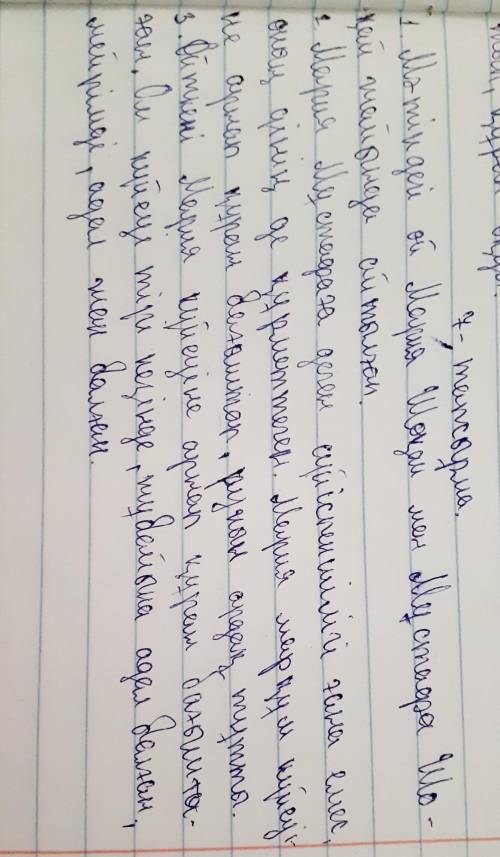 7-тапсырма.
1. Мәтіндегі ой Мария Шоқай мен Мұстафа Шо-
қай жайында айтылған.
2. Мария Мұстафаға деген сүйіспеншілігі ғана емес,
оның дінін де құрметтеген. Мария марқұм күйеуі-
не арнап құран бағыштап, рухын ардақ тұтты.
3. Өйткені Мария күйеуіне арнап құран бағышта-
ған. Ол күйеуі тірі кезінде, мұғайына адал болған,
мейрімді, адал жан болған.